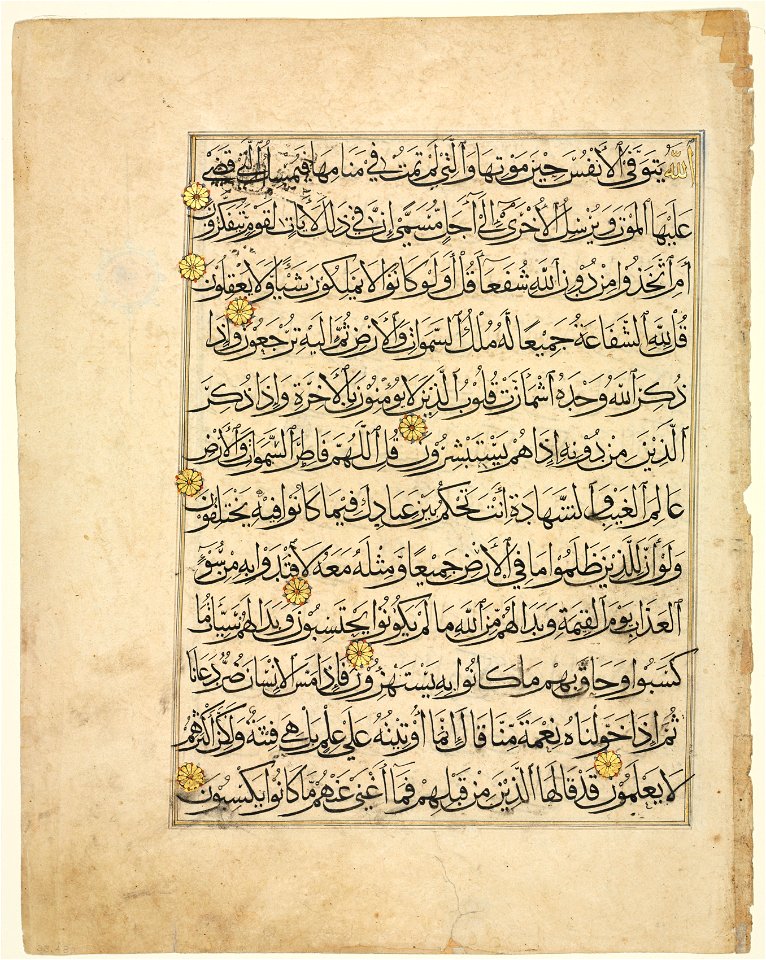 ٱللَّهُ يَتَوَفَّى ٱلْأَنْفُسَ حِينَ مَوْتِهَا وَٱلَّتِى لَمْ تَمُتْ فِى مَنَامِهَا فَيُمْسِكُ ٱلَّتِى قَضَى
عَلَيْهَا ٱلْمَوْتَ وَيُرْسِلُ ٱلْأُخْرَىٰٓ إِلَىٰٓ أَجَلٍ مُسَمًّى إِنَّ فِى ذَٰلِكَ لَآيَاتٍ لِقَوْمٍ يَتَفَكَّرُونَ
أَمِ ٱتَّخَذُوا مِنْ دُونِ ٱللَّهِ شُفَعَآءَ قُلْ أَوَلَوْ كَانُوا لَا يَمْلِكُونَ شَيْـًٔا وَلَا يَعْقِلُونَ
قُلْ لِلَّهِ ٱلشَّفَاعَةُ جَمِيعًا لَهُ مُلْكُ ٱلسَّمَوَاتِ وَٱلْأَرْضِ ثُمَّ إِلَيْهِ تُرْجَعُونَ وَإِذَا
ذُكِرَ ٱللَّهُ وَحْدَهُ ٱشْمَأَزَّتْ قُلُوبُ ٱلَّذِينَ لَا يُؤْمِنُونَ بِٱلْآخِرَةِ وَإِذَا ذُكِرَ
ٱلَّذِينَ مِنْ دُونِهِ إِذَا هُمْ يَسْتَبْشِرُونَ قُلِ ٱللَّهُمَّ فَاطِرَ ٱلسَّمَوَاتِ وَٱلْأَرْضِ
عَالِمَ ٱلْغَيْبِ وَٱلشَّهَادَةِ أَنْتَ تَحْكُمُ بَيْنَ عِبَادِكَ فِيمَا كَانُوا فِيهِ يَخْتَلِفُونَ
وَلَوْ أَنَّ لِلَّذِينَ ظَلَمُوا مَا فِى ٱلْأَرْضِ جَمِيعًا وَمِثْلَهُ مَعَهُ لَٱفْتَدَوْا بِهِ مِنْ سُوٓءِ
ٱلْعَذَابِ يَوْمَ ٱلْقِيٰمَةِ وَبَدَا لَهُمْ مِنَ ٱللَّهِ مَا لَمْ يَكُونُوا يَحْتَسِبُونَ وَبَدَا لَهُمْ سَيِّـَٔاتُ مَا
كَسَبُوا وَحَاقَ بِهِمْ مَا كَانُوا بِهِ يَسْتَهْزِءُونَ فَإِذَا مَسَّ ٱلْإِنْسَانَ ضُرٌّ دَعَانَا
ثُمَّ إِذَا خَوَّلْنَاهُ نِعْمَةً مِنَّا قَالَ إِنَّمَآ أُوتِيتُهُ عَلَى عِلْمٍ بَلْ هِىَ فِتْنَةٌ وَلَٰكِنَّ أَكْثَرَهُمْ
لَا يَعْلَمُونَ قَدْ قَالَهَا ٱلَّذِينَ مِنْ قَبْلِهِمْ فَمَآ أَغْنَى عَنْهُمْ مَا كَانُوا يَكْسِبُونَ